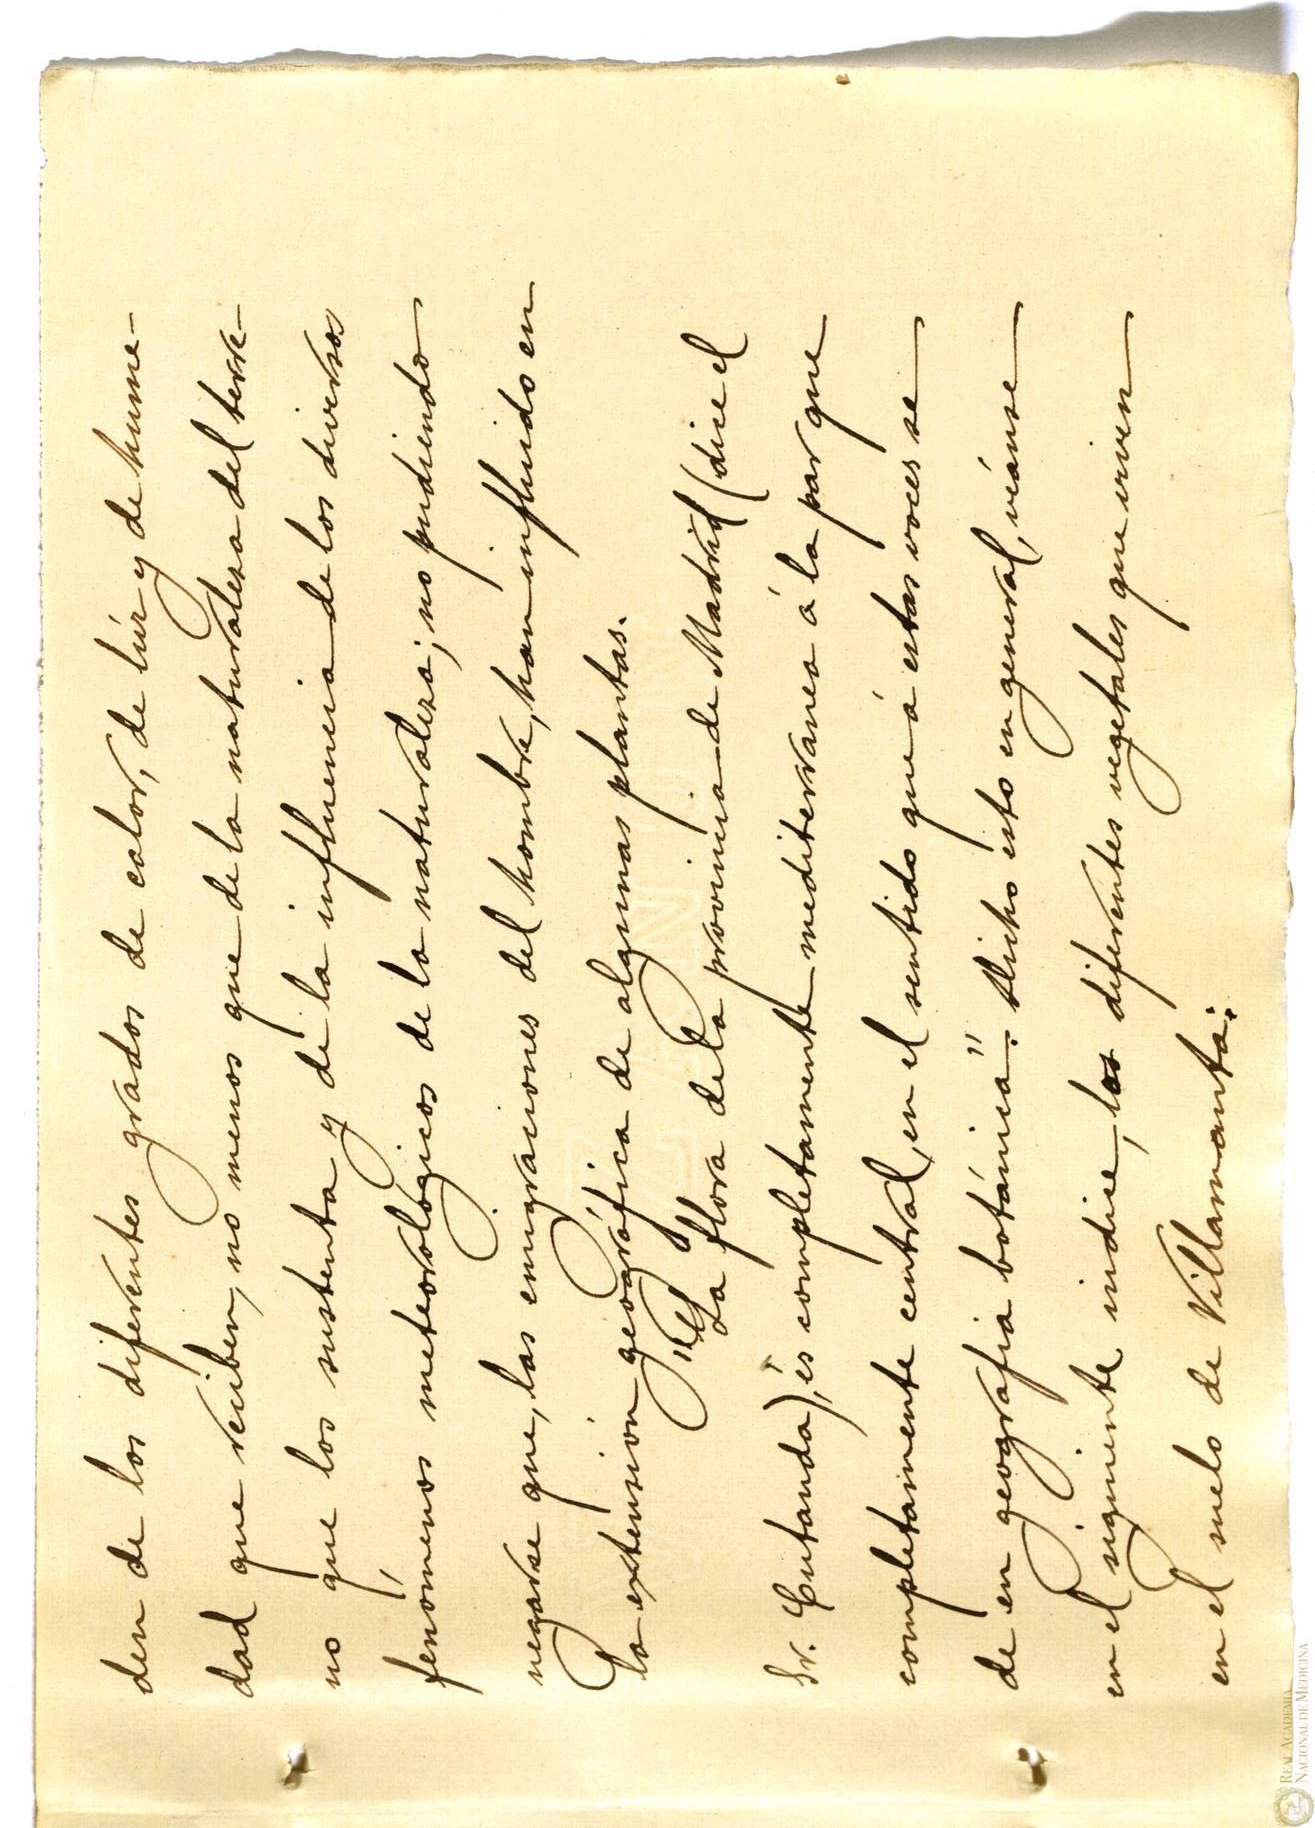 den de los diferentes grados de calor, de lúz y de hume-
dad que reciben, no menos que de la naturaleza del terre-
no que los sustenta y de la influencia de los diversos
fenómenos meteorologicos de la naturaleza; no pudiendo
negarse que, las emigraciones del hombre, han influido en
la extensión geográfica de algunas plantas.
"La flora de la provincia de Madrid (dice el
Sr. Cutanda), és completamente mediterranea á la par que
completamente central, en el sentido que á estas voces se
de en geografia botánica". Dicho esto en general, véanse
en el siguiente indice, los diferentes vegetales que viven
en el suelo de Villamanta:
REAL ACADEMIA
NACIONAL DE MEDICINA